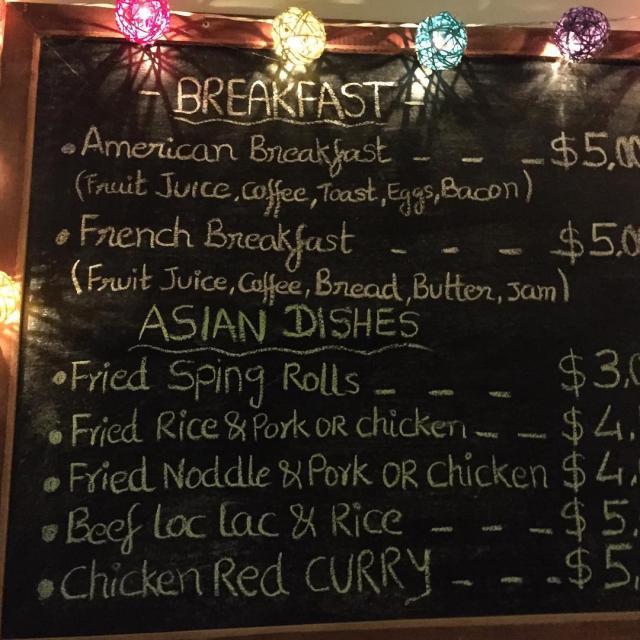 - BREAKFAST -
• American Breakfast - - - $5.00
(Fruit Juice, Coffee, Toast, Eggs, Bacon)
• French Breakfast - - - $5.00
(Fruit Juice, Coffee, Bread, Butter, Jam)
ASIAN DISHES
• Fried Sping Rolls - - - $3.
• Fried Rice & Pork OR chicken - - $4.
• Fried Noddle & Pork OR chicken $4.
• Beef Loc Lac & Rice - - - $5.
• Chicken Red CURRY - - - $5.